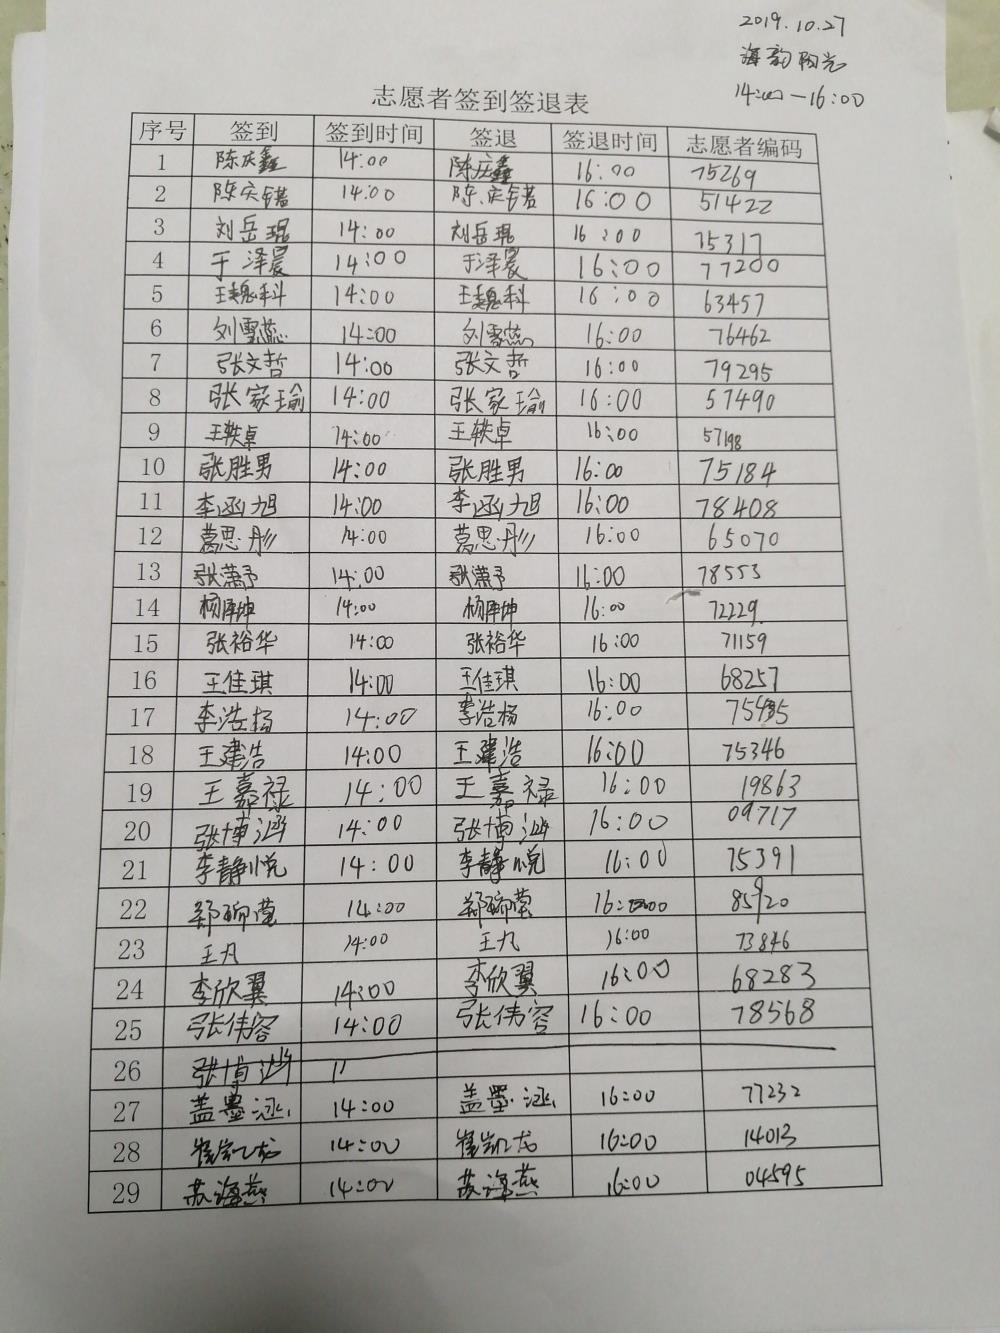 2019.10.27
海韵阳光
14:00—16:00
志愿者签到签退表
序号 签到 签到时间 签退 签退时间 志愿者编码
1 陈庆鑫 14:00 陈庆鑫 16:00 75269
2 陈庆锴 14:00 陈庆锴 16:00 51422
3 刘岳琨 14:00 刘岳琨 16:00 75317
4 于泽晨 14:00 于泽晨 16:00 77200
5 王魏科 14:00 王魏科 16:00 63457
6 刘雪蕊 14:00 刘雪蕊 16:00 76462
7 张文哲 14:00 张文哲 16:00 79295
8 张家瑜 14:00 张家瑜 16:00 57490
9 王轶卓 14:00 王轶卓 16:00 57198
10 张胜男 14:00 张胜男 16:00 75184
11 李函旭 14:00 李函旭 16:00 78408
12 葛思彤 14:00 葛思彤 16:00 65070
13 张潇予 14:00 张潇予 16:00 78553
14 14:00 16:00 72229
15 张裕华 14:00 张裕华 16:00 71159
16 王佳琪 14:00 王佳琪 16:00 68257
17 李浩杨 14:00 李浩杨 16:00
18 王建浩 14:00 王建浩 16:00 75346
19 王嘉禄 14:00 王嘉禄 16:00 19863
20 张博涵 14:00 张博涵 16:00 09717
21 李静悦 14:00 李静悦 16:00 75391
22 14:00 85920
23 王凡 14:00 王凡 16:00 73846
24 李欣翼 14:00 李欣翼 16:00 68283
25 张伟容 14:00 张伟容 16:00 78568
26 张博涵
27 盖墨涵 14:00 盖墨涵 16:00 77232
28 崔凯龙 14:00 崔凯龙 16:00 14013
29 苏海燕 14:00 苏海燕 16:00 04595